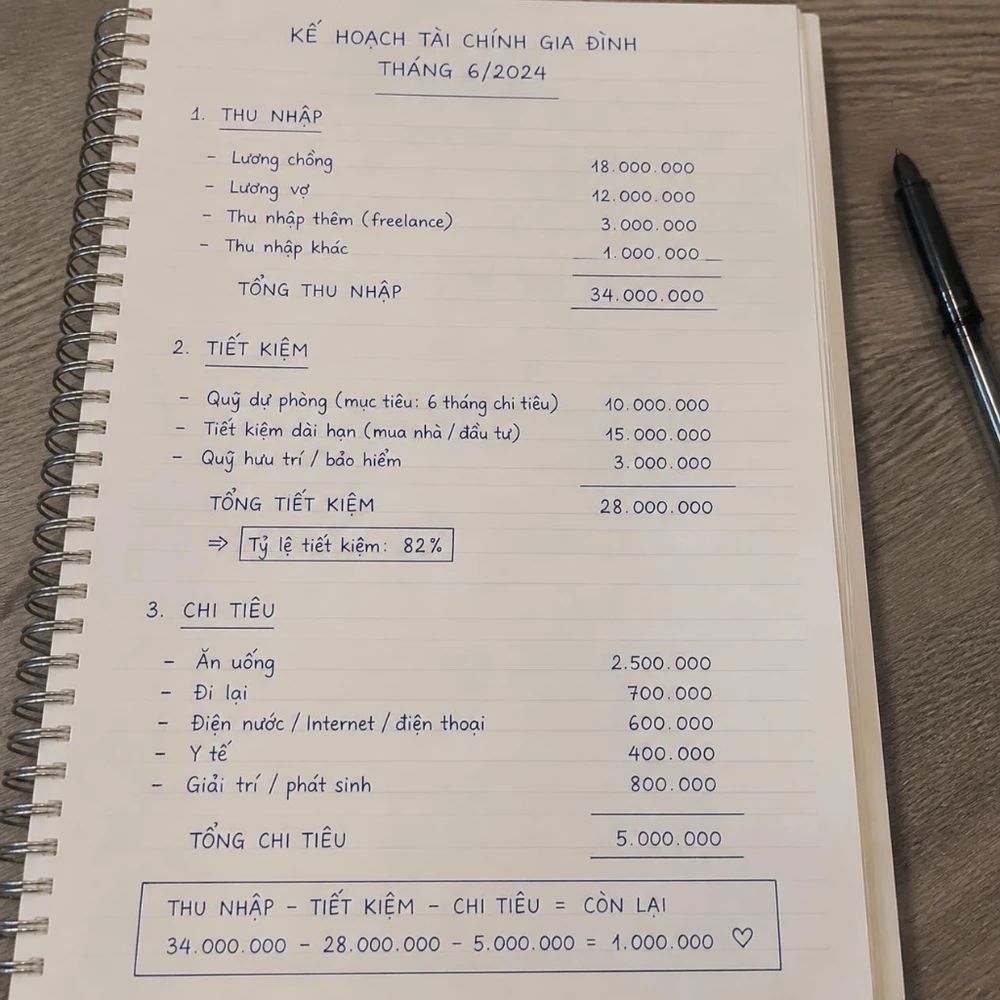 KẾ HOẠCH TÀI CHÍNH GIA ĐÌNH
THÁNG 6/2024
1. THU NHẬP
- Lương chồng 18.000.000
- Lương vợ 12.000.000
- Thu nhập thêm (freelance) 3.000.000
- Thu nhập khác 1.000.000
TỔNG THU NHẬP 34.000.000
2. TIẾT KIỆM
- Quỹ dự phòng (mục tiêu: 6 tháng chi tiêu) 10.000.000
- Tiết kiệm dài hạn (mua nhà / đầu tư) 15.000.000
- Quỹ hưu trí / bảo hiểm 3.000.000
TỔNG TIẾT KIỆM 28.000.000
⇒ Tỷ lệ tiết kiệm: 82%
3. CHI TIÊU
- Ăn uống 2.500.000
- Đi lại 700.000
- Điện nước / Internet / điện thoại 600.000
- Y tế 400.000
- Giải trí / phát sinh 800.000
TỔNG CHI TIÊU 5.000.000
THU NHẬP - TIẾT KIỆM - CHI TIÊU = CÒN LẠI
34.000.000 - 28.000.000 - 5.000.000 = 1.000.000 ♡